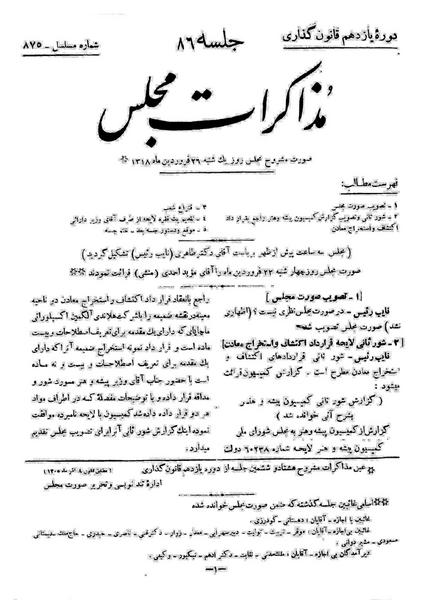 دورهٔ یازدهم قانون گذاری
جلسه ۸۶
شماره مسلسل - ۸۷۵
مذاکرات مجلس
صورت مشروح مجلس روز یك شنبه ۲۶ فروردین ماه ۱۳۱۸
فهرست مطالب:
۱ - تصویب صورت مجلس
۲ - شور ثانی و تصویب گزارش کمیسیون پیشه و هنر راجع بقرارداد
اکتشاف و استخراج معادن
۳ - قتراع شعب
۴ - تقدیم یك فقره لایحه از طرف آقای وزیر دارائی
۵ - موقع و دستور جلسه بعد - ختم جلسه
(مجلس سه ساعت پیش از ظهر بریاست آقای دکتر طاهری (نایب رئیس) تشکیل گردید)
صورت مجلس روز چهار شنبه ۲۲ فروردین ماه را آقای مؤید احمدی (منشی) قرائت نمودند
[۱ - تصویب صورت مجلس]
نایب رئیس - در صورت مجلس نظری نیست؟ (اظهاری
نشد) صورت مجلس تصویب شد.
[۲ - شور ثانی لایحه قرارداد اکتشاف و استخراج معادن]
نایب رئیس - شور ثانی قراردادهای اکتشاف و
استخراج معادن مطرح است. گزارش کمیسیون قرائت
میشود:
(گزارش شور ثانی کمیسیون پیشه و هنر
بشرح آتی خوانده شد)
گزارش از کمیسیون پیشه و هنر به مجلس شورای ملی
کمیسیون پیشه و هنر لایحه شماره ۶۰۲۳۸ دولت
راجع بانعقاد قرارداد اکتشاف و استخراج معادن در ناحیه
معینه در نقشه ضمیمه را با شرکت هلندی آلگمین اکسپلوراتی
ماچاپای که دارای یك مقدمه برای تعریف اصطلاحات و بیست
ماده است و قرارداد نمونه استخراج ضمیمه آنرا که دارای
یك مقدمه برای تعریف اصطلاحات و بیست و نه ماده
است با حضور جناب آقای وزیر پیشه و هنر مورد شور و
مداقه قرار داده و با توضیحات مفصلی که در اطراف مواد
هر دو قرار داده داده شد کمیسیون با لایحه نامبرده موافقت
نموده اینك گزارش شور ثانی آنرا برای تصویب مجلس تقدیم
میدارد.
عین مذاکرات مشروح هشتاد و ششمین جلسه از دوره یازدهم قانون گذاری
اداره تند نویسی و تحریر صورت مجلس
اسامی غائبین جلسه گذشته که ضمن صورت مجلس خوانده شده
غائبین با اجازه - آقایان: دهستانی - گودرزی.
غائبین بی اجازه - آقایان: موقر - تربیت - تولیت - دبیر سهرابی - معدل - زوار - دکتر غنی - ناصری - جلیوند - حاج ملك - ستایش
مسعودی - مشیر دوانی.
دیر آمدگان بی اجازه - آقایان: ملك مدنی - نقابت - دکتر ادهم - نیکپور - وکیلی.
-۱-